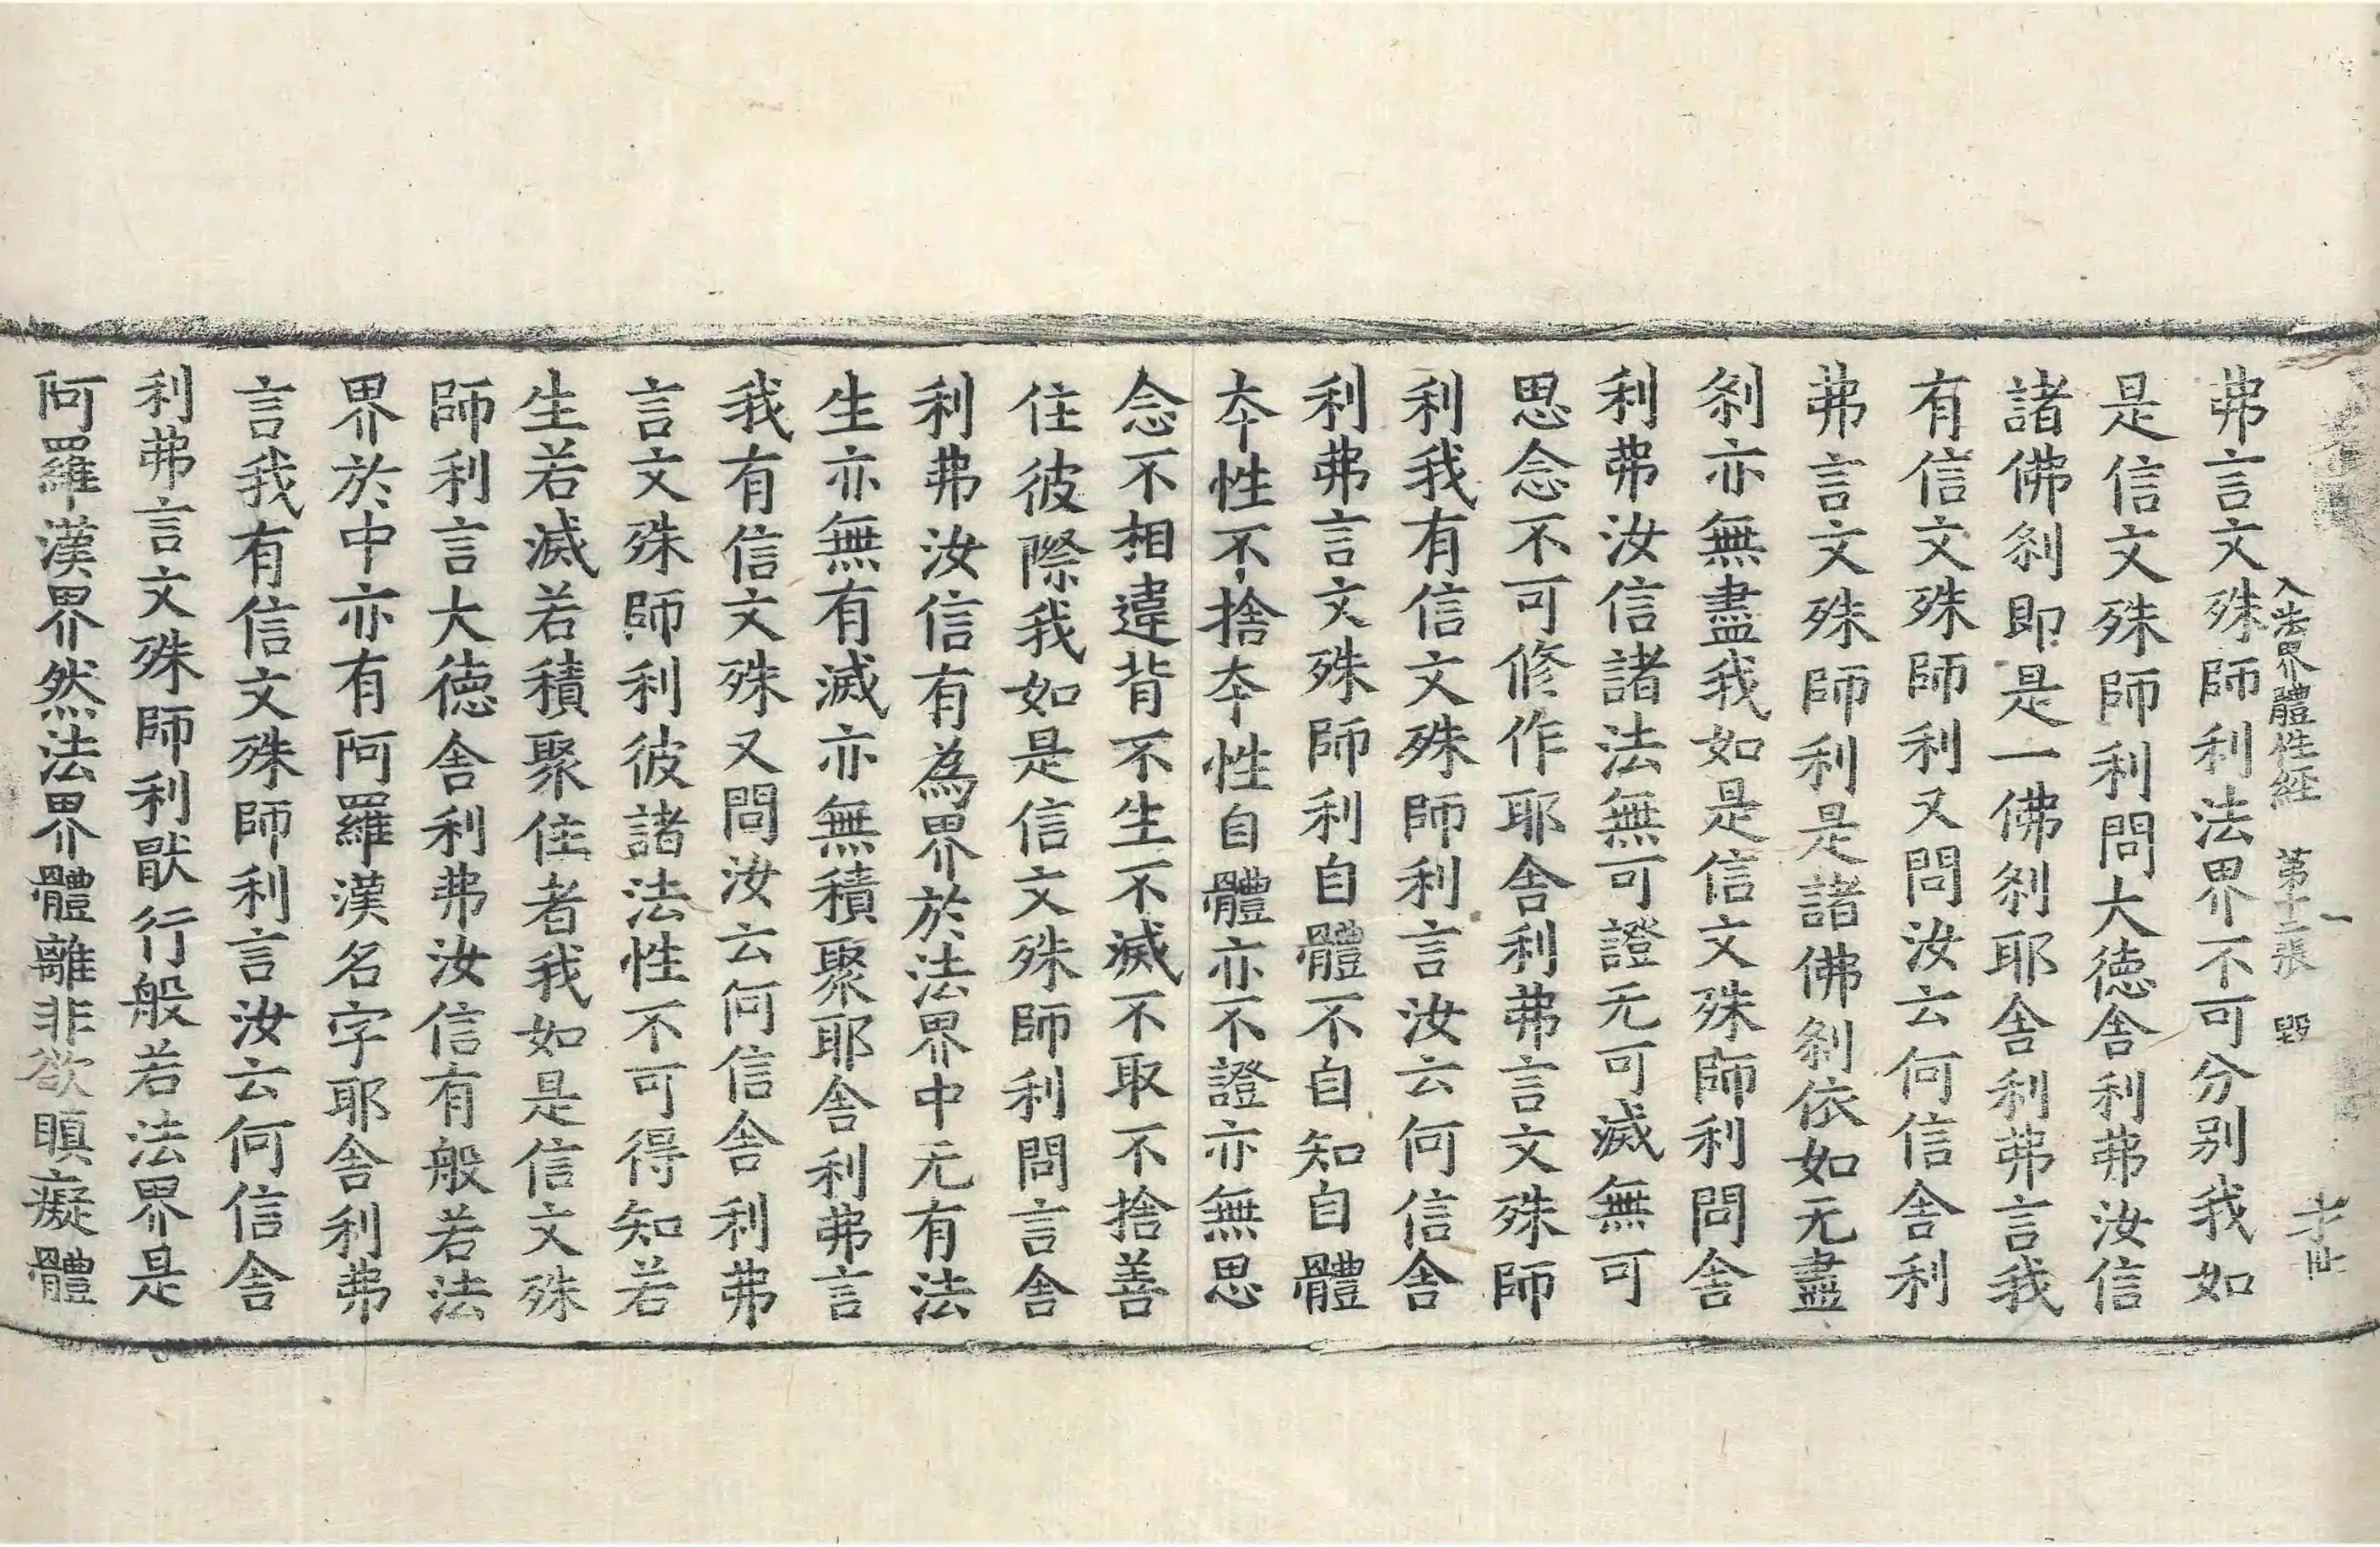 入法界體性經 第十二張 毀
弗言文殊師利法界不可分別我如
是信文殊師利問大徳舍利弗汝信
諸佛刹即是一佛刹耶舍利弗言我
有信文殊師利又問汝云何信舍利
弗言文殊師利是諸佛刹依如无盡
刹亦無盡我如是信文殊師利問舍
利弗汝信諸法無可證无可滅無可
思念不可修作耶舍利弗言文殊師
利我有信文殊師利言汝云何信舍
利弗言文殊師利自體不自知自體
夲性不捨夲性自體亦不證亦無思
念不相違背不生不滅不取不捨善
住彼際我如是信文殊師利問言舍
利弗汝信有為界於法界中无有法
生亦無有滅亦無積聚耶舍利弗言
我有信文殊又問汝云何信舍利弗
言文殊師利彼諸法性不可得知若
生若滅若積聚住者我如是信文殊
師利言大徳舍利弗汝信有般若法
界於中亦有阿羅漢名字耶舍利弗
言我有信文殊師利言汝云何信舍
利弗言文殊師利猒行般若法界是
阿羅漢界然法界體離非欲瞋癡體